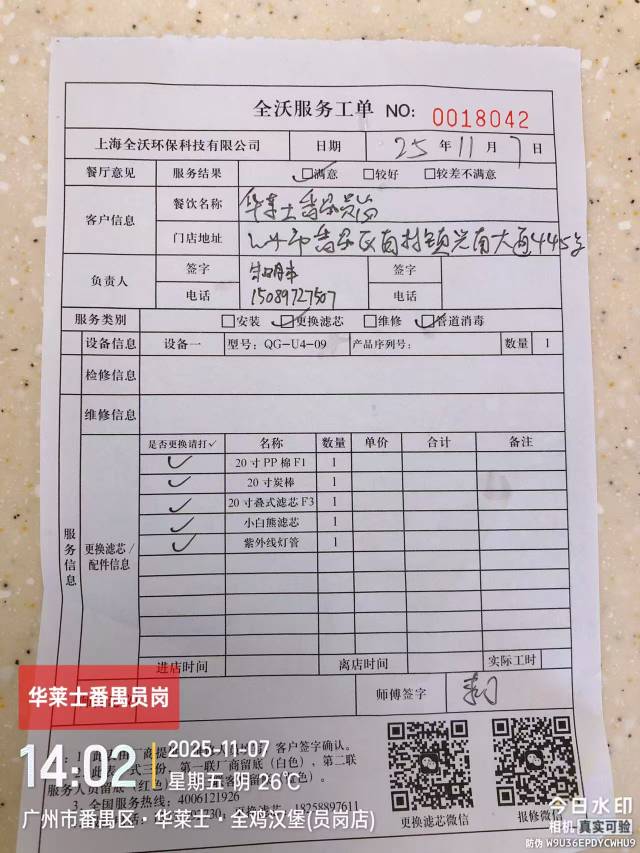 全沃服务工单 NO: 0018042
上海全沃环保科技有限公司 日期 25 年 11 月 7 日
餐厅意见 服务结果 ☑满意 □较好 □较差不满意
客户信息 餐饮名称 华莱士番禺员岗
门店地址 广州市番禺区南村镇兴南大道445号
负责人 签字 签字
电话 15089727507 电话
服务类别 □安装 ☑更换滤芯 □维修 ☑管道消毒
设备信息 设备一 型号: QG-U4-09 产品序列号: 数量 1
检修信息
维修信息
服务信息
更换滤芯/配件信息
是否更换请打✓ 名称 数量 单价 合计 备注
✓ 20寸PP棉F1 1
✓ 20寸炭棒 1
✓ 20寸叠式滤芯F3 1
✓ 小白熊滤芯 1
✓ 紫外线灯管 1
进店时间 离店时间 实际工时
师傅签字
华莱士番禺员岗
14:02 2025-11-07
星期五 阴 26℃
广州市番禺区·华莱士·全鸡汉堡(员岗店)
客户签字确认。
式三份，第一联厂商留底（白色），第二联
服务人员留底（红色）
3、全国服务热线: 4006121926
18258897611
更换滤芯微信 报修微信
今日水印
相机 真实可验
防伪 W9U36EPDYCWHU9